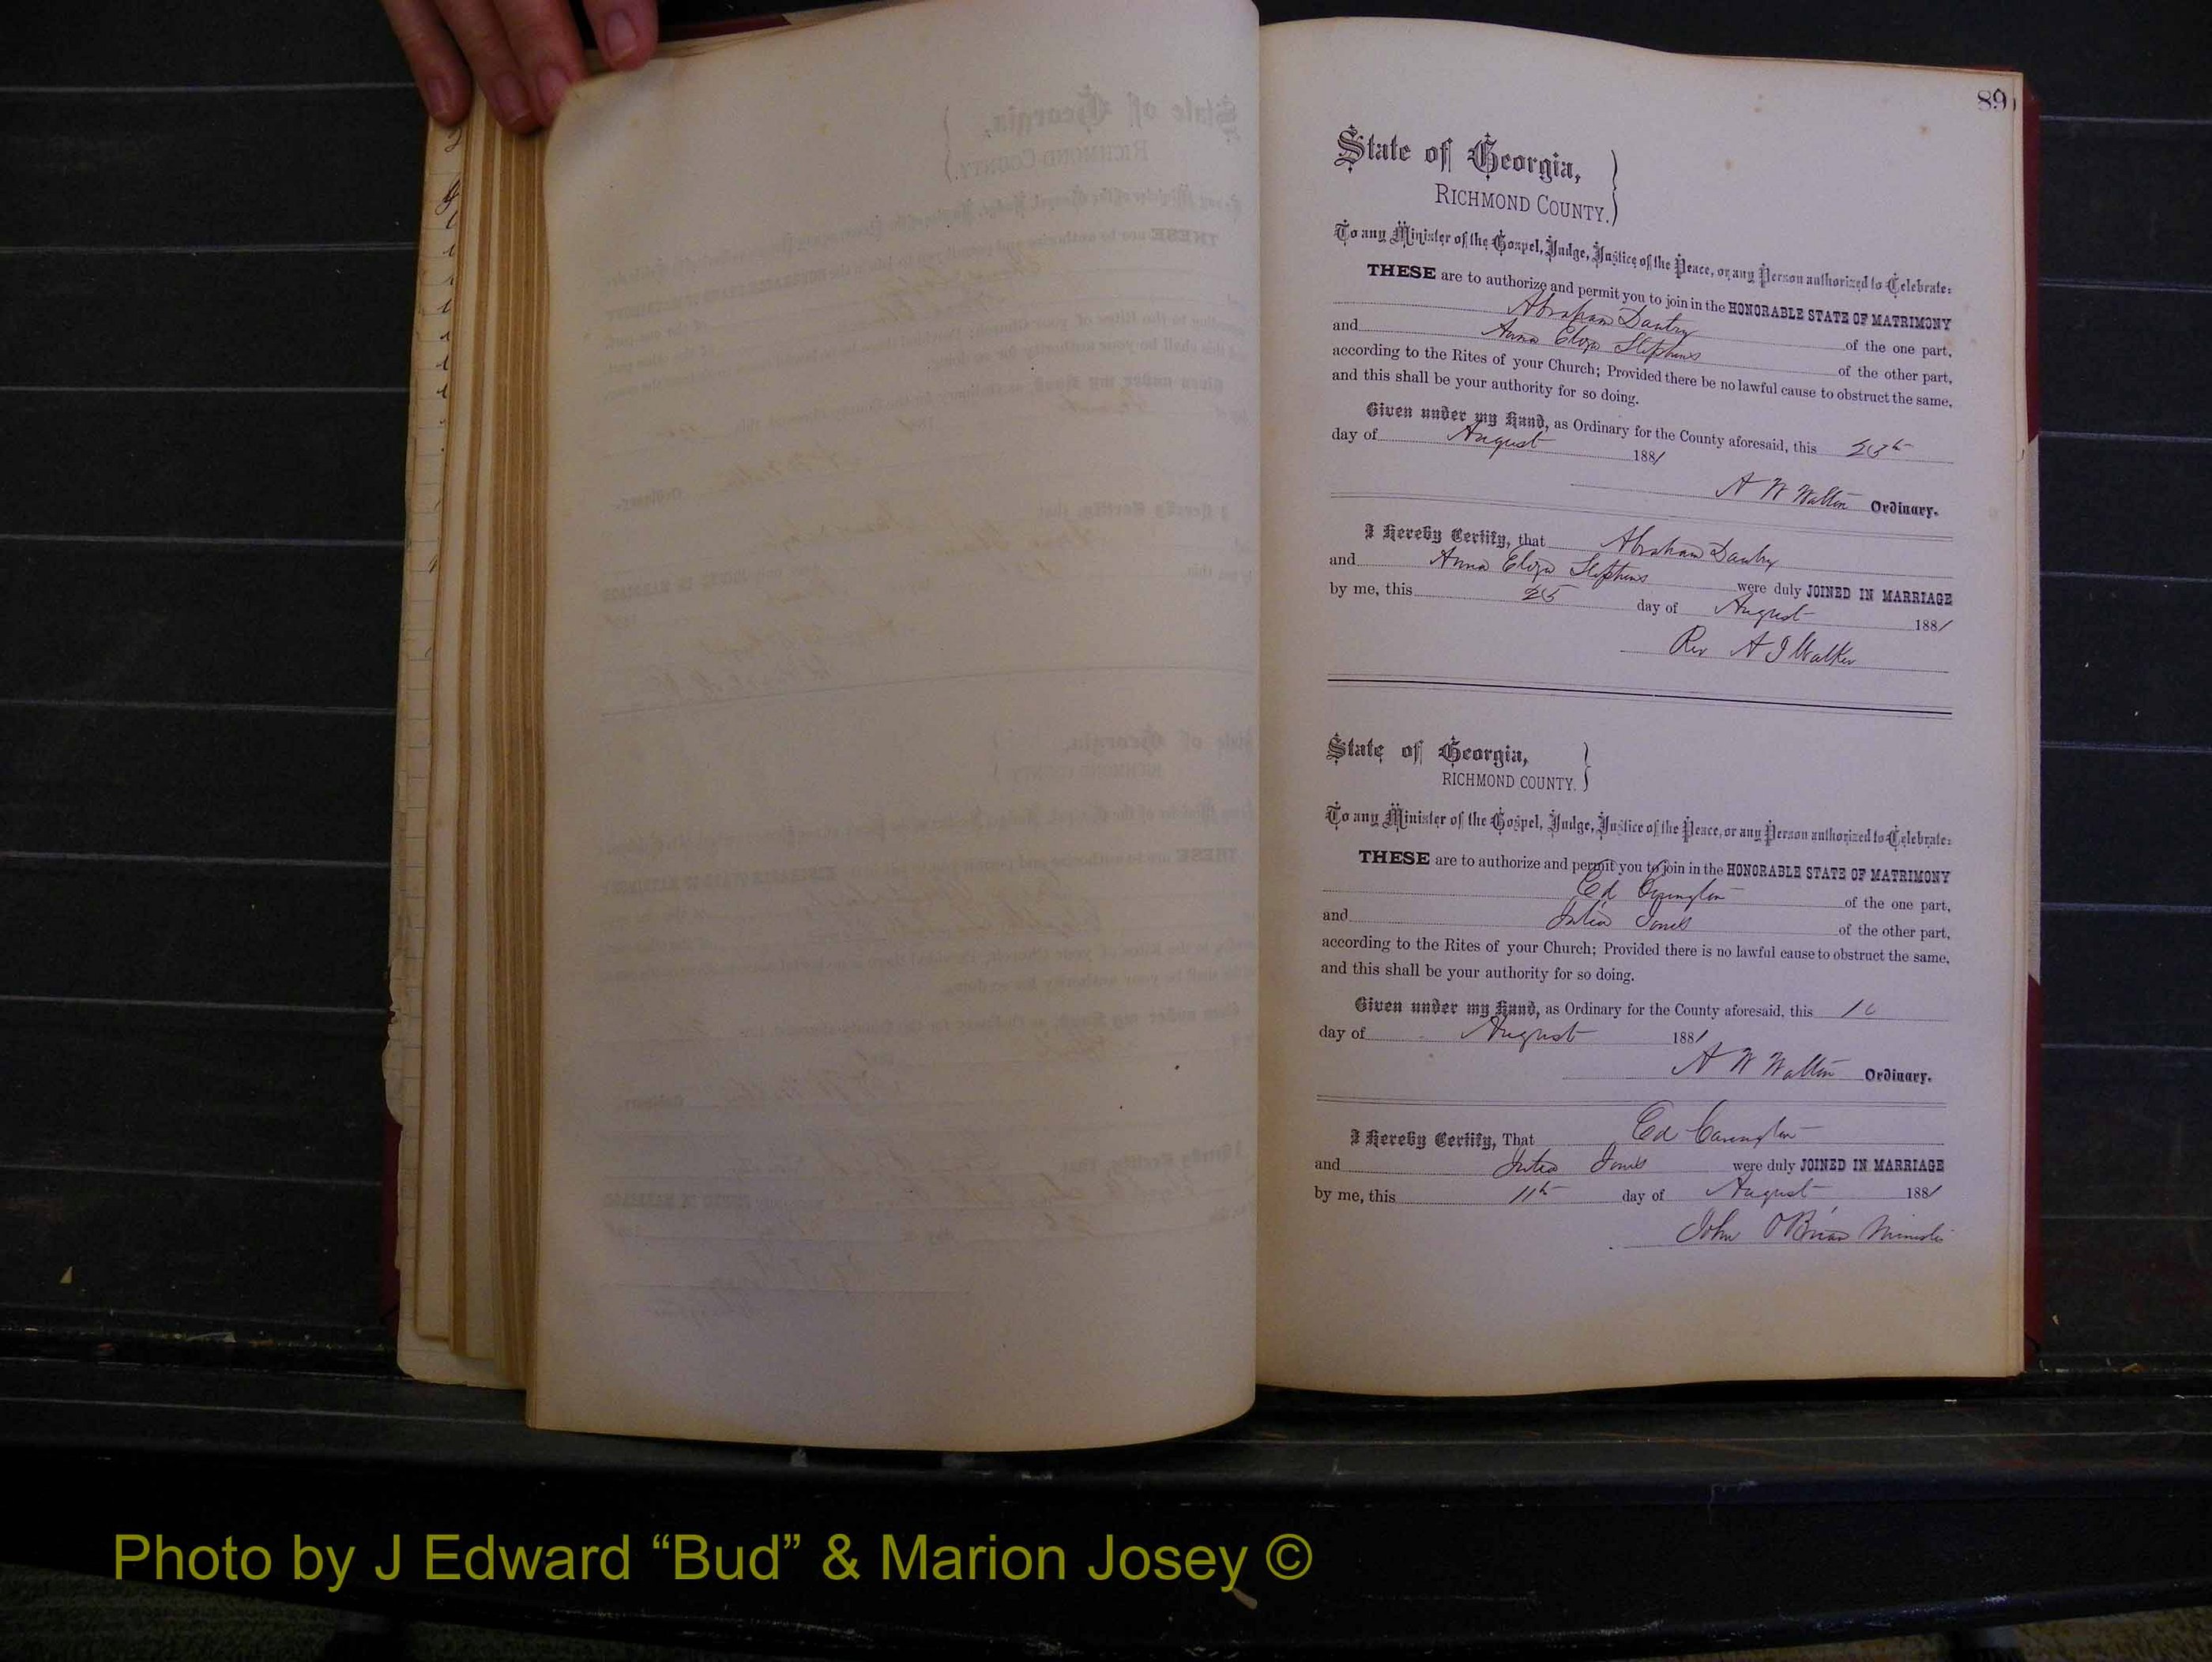 89
State of Georgia,
RICHMOND COUNTY.
To any Minister of the Gospel, Judge, Justice of the Peace, or any Person authorized to Celebrate:
THESE are to authorize and permit you to join in the HONORABLE STATE OF MATRIMONY
Abraham Dantry of the one part,
and Anna Eliza Stephens of the other part,
according to the Rites of your Church; Provided there be no lawful cause to obstruct the same,
and this shall be your authority for so doing.
Given under my Hand, as Ordinary for the County aforesaid, this 25th
day of August 1881
A W Walton Ordinary.
I Hereby Certify, that Abraham Dantry
and Anna Eliza Stephens were duly JOINED IN MARRIAGE
by me, this 25 day of August 1881
Rev A J Walker
State of Georgia,
RICHMOND COUNTY.
To any Minister of the Gospel, Judge, Justice of the Peace, or any Person authorized to Celebrate:
THESE are to authorize and permit you to join in the HONORABLE STATE OF MATRIMONY
Ed of the one part,
and Julia Jones of the other part,
according to the Rites of your Church; Provided there is no lawful cause to obstruct the same,
and this shall be your authority for so doing.
Given under my Hand, as Ordinary for the County aforesaid, this
day of August 1881
A W Walton Ordinary.
I Hereby Certify, That Ed Carington
and Julia Jones were duly JOINED IN MARRIAGE
by me, this 11th day of August 1881
John O'Brian Minister
Photo by J Edward “Bud” & Marion Josey ©